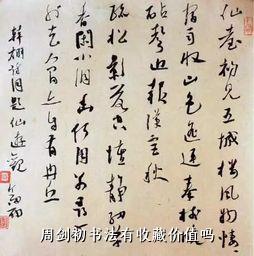 仙臺初見五城樓風物悽〻
宿雨收山色遥連秦樹晚
砧聲近報漢宮秋
疏松影落空壇靜細草
香閑小洞幽何用別尋
方外去人間亦自有丹丘
韓翃詩同題仙遊觀 劍初
周剑初书法有收藏价值吗